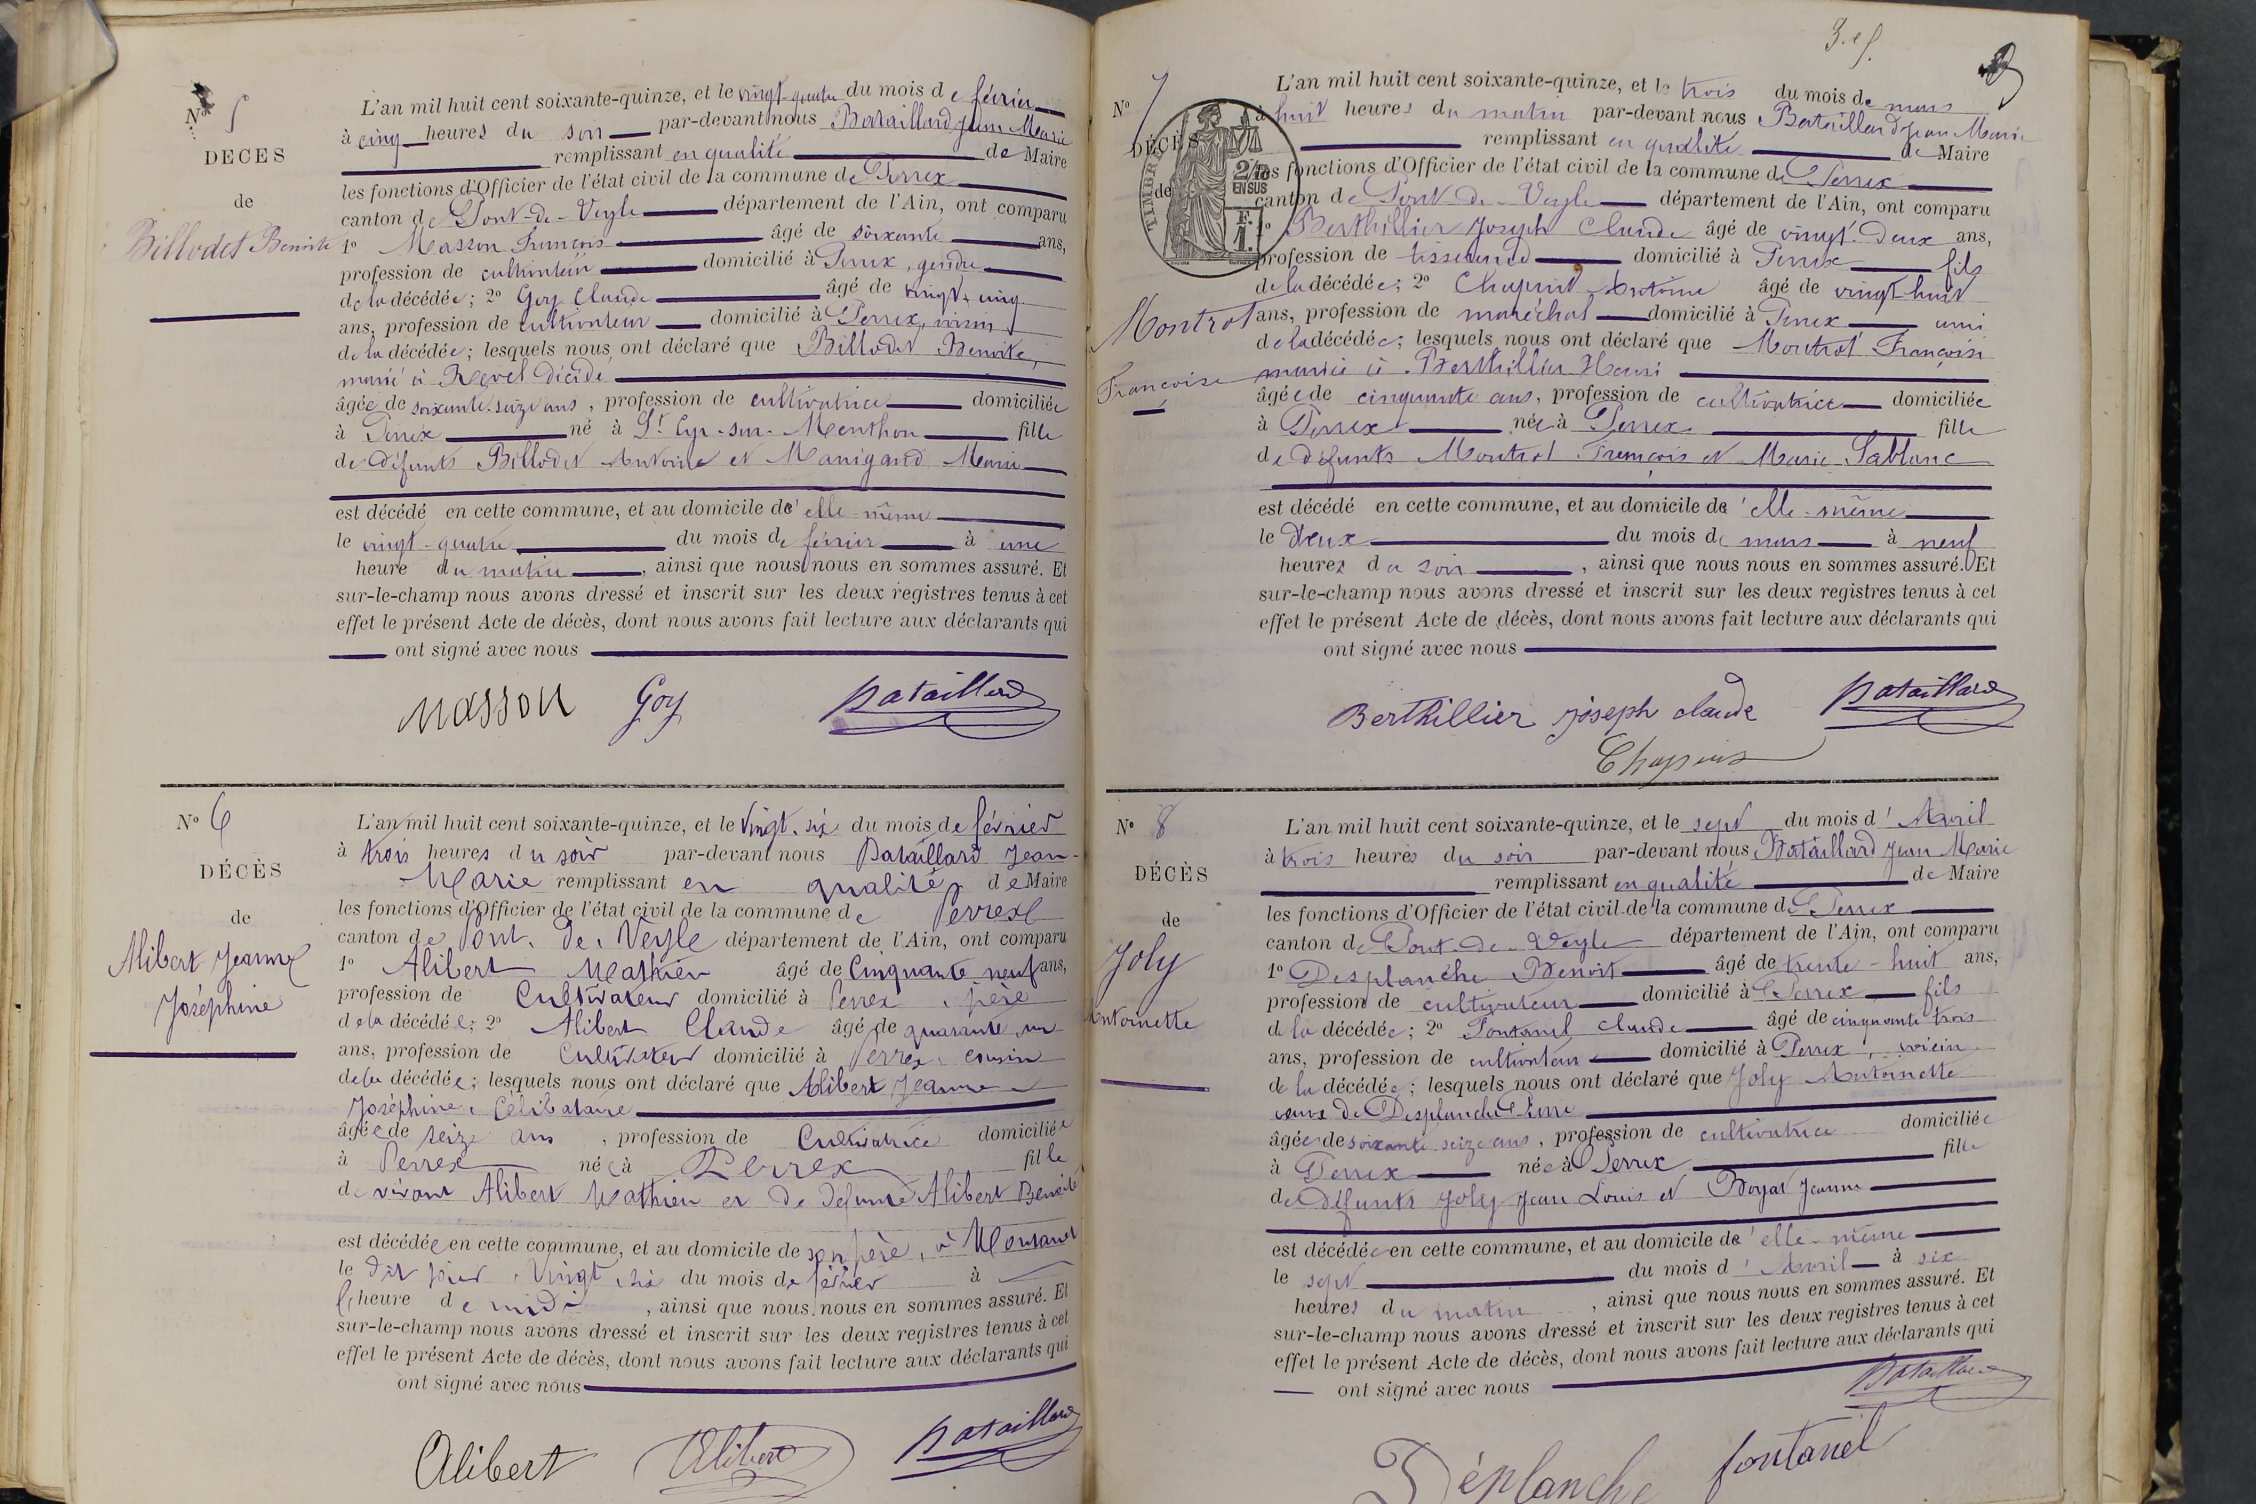 Nº 5
DECES
de
Billodet Benoite
L'an mil huit cent soixante-quinze, et le vingt-quatre du mois de février
à cinq heures du soir par-devant nous Bataillard Jean Marie
remplissant en qualité de Maire
les fonctions d'Officier de l'état civil de la commune de Perrex
canton de Pont-de-Veyle département de l'Ain, ont comparu
1º Masson François âgé de soixante ans,
profession de cultivateur domicilié à Perrex, gendre
de la décédée; 2º Goy Claude âgé de vingt cinq
ans, profession de cultivateur domicilié à Perrex, voisin
de la décédée; lesquels nous ont déclaré que Billodet Benoite,
marié à décédé
âgée de soixante-seize ans, profession de cultivatrice domiciliée
à Perrex né à St Cyr-sur-Menthon fille
de défunts Billodet Antoine et Manigand Marie
est décédé en cette commune, et au domicile de d'elle-même
le vingt-quatre du mois de février à une
heure du matin, ainsi que nous nous en sommes assuré. Et
sur-le-champ nous avons dressé et inscrit sur les deux registres tenus à cet
effet le présent Acte de décès, dont nous avons fait lecture aux déclarants qui
ont signé avec nous
Masson Goy Bataillard
Nº 6
DÉCÈS
de
Alibert Jeanne
Joséphine
L'an mil huit cent soixante-quinze, et le vingt-six du mois de février
à trois heures du soir par-devant nous Bataillard Jean-
Marie remplissant en qualité de Maire
les fonctions d'Officier de l'état civil de la commune de Perrex
canton de Pont-de-Veyle département de l'Ain, ont comparu
1º Alibert Mathieu âgé de Cinquante neuf ans,
profession de Cultivateur domicilié à Perrex, père
de la décédée; 2º Alibert Claude âgé de quarante un
ans, profession de Cultivateur domicilié à Perrex, cousin
de la décédée; lesquels nous ont déclaré que Alibert Jeanne
Joséphine, Célibataire
âgée de seize ans, profession de Cultivatrice domiciliée
à Perrex née à Perrex fille
de vivant Alibert Mathieu et de défunte Alibert Benoite
est décédée en cette commune, et au domicile de son père, à
le dit jour, vingt six du mois de février à
l'heure de midi, ainsi que nous nous en sommes assuré. Et
sur-le-champ nous avons dressé et inscrit sur les deux registres tenus à cet
effet le présent Acte de décès, dont nous avons fait lecture aux déclarants qui
ont signé avec nous
Alibert Alibert Bataillard
Nº 7
DÉCÈS
de
Montrol
Françoise
TIMBRE
2/10
EN SUS
F.
1.
L'an mil huit cent soixante-quinze, et le trois du mois de mars
à huit heures du matin par-devant nous Bataillard Jean Marie
remplissant en qualité de Maire
les fonctions d'Officier de l'état civil de la commune de Perrex
canton de Pont-de-Veyle département de l'Ain, ont comparu
1º Berthillier Joseph Claude âgé de vingt-deux ans,
profession de tisserand domicilié à Perrex fils
de la décédée; 2º Chapuis Antoine âgé de vingt-huit
ans, profession de maréchal domicilié à Perrex ami
de la décédée; lesquels nous ont déclaré que Montrol Françoise
mariée à Berthillier Henri
âgée de cinquante ans, profession de cultivatrice domiciliée
à Perrex née à Perrex fille
de défunts Montrol François et Marie Lablanc
est décédé en cette commune, et au domicile de d'elle-même
le deux du mois de mars à neuf
heures du soir, ainsi que nous nous en sommes assuré. Et
sur-le-champ nous avons dressé et inscrit sur les deux registres tenus à cet
effet le présent Acte de décès, dont nous avons fait lecture aux déclarants qui
ont signé avec nous
Berthillier joseph claude Bataillard
Chapuis
Nº 8
DÉCÈS
de
Joly
Antoinette
L'an mil huit cent soixante-quinze, et le sept du mois d'Avril
à trois heures du soir par-devant nous Bataillard Jean Marie
remplissant en qualité de Maire
les fonctions d'Officier de l'état civil de la commune de Perrex
canton de Pont-de-Veyle département de l'Ain, ont comparu
1º Desplanche Benoit âgé de trente-huit ans,
profession de cultivateur domicilié à Perrex fils
de la décédée; 2º Fontanel Claude âgé de cinquante trois
ans, profession de cultivateur domicilié à Perrex, voisin
de la décédée; lesquels nous ont déclaré que Joly Antoinette
veuve de Desplanche Pierre
âgée de soixante-seize ans, profession de cultivatrice domiciliée
à Perrex née à Perrex fille
de défunts Joly Jean Louis et Boyat Jeanne
est décédée en cette commune, et au domicile de d'elle-même
le sept du mois d'Avril à six
heures du matin, ainsi que nous nous en sommes assuré. Et
sur-le-champ nous avons dressé et inscrit sur les deux registres tenus à cet
effet le présent Acte de décès, dont nous avons fait lecture aux déclarants qui
ont signé avec nous
Bataillard
Déplanche fontanel